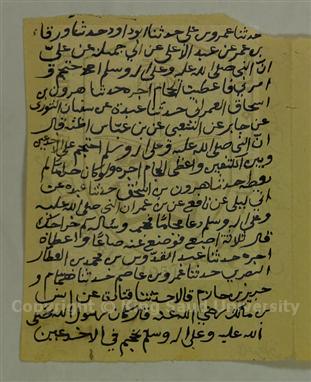 حدثنا عمرو بن علي حدثنا ابو داود حدثنا ورقاء
بن عمر عن عبد الاعلى عن ابي جميلة عن علي
ان النبي صلى الله عليه وعلى اله وسلم احتجم و
امرني فاعطيت الحجام اجره حدثنا هرون بن
اسحاق الهمداني حدثنا عبدة عن سفيان الثوري
عن جابر عن الشعبي عن بن عباس اظنه قال
ان النبي صلى الله عليه وعلى اله وسلم احتجم على الاخدعين
وبين الكتفين واعطى الحجام اجره ولو كان حراما لم
يعطه حدثنا هرون بن اسحق حدثنا عبدة عن
ابن ابي ليلى عن نافع عن بن عمر ان النبي صلى الله عليه
وعلى اله وسلم دعا حجاما فحجمه وساله كم خراجك
قال ثلاثة اصع فوضع عنه صاعا واعطاه
اجره حدثنا عبد القدوس بن محمد بن العطار
البصري حدثنا عمرو بن عاصم حدثنا همام و
جرير بن حازم قالا حدثنا قتادة عن انس
بن مالك رضي الله عنه قال كان رسول الله صلى
الله عليه وعلى اله وسلم يحتجم في الاخدعين